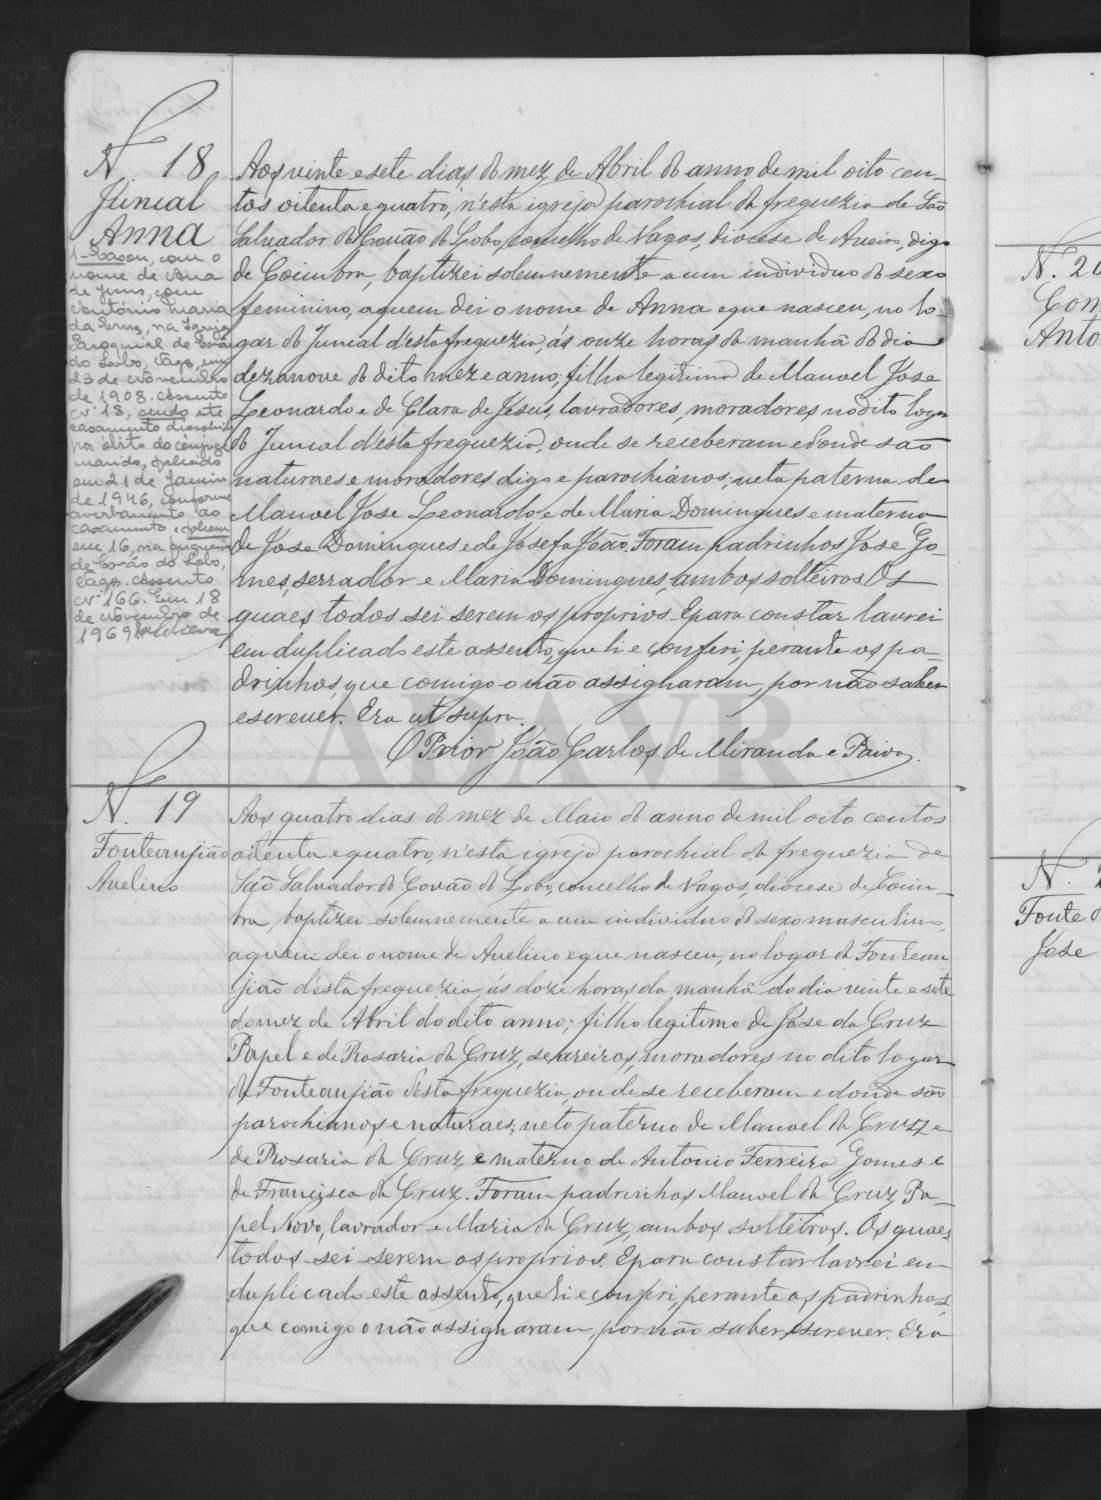 N. 18
Juncal
Anna
1-Casou, com o
nome de Ana
de Jesus, com
António Maria
da Cruz, na Igreja
Paroquial de Covão
do Lobo, Vagos, em
23 de Novembro
de 1908. Assento
Nº 18, sendo este
casamento dissolvido
por óbito do cônjuge
marido, falecido
em 21 de Janeiro
de 1946, conforme
averbamento ao
casamento
em 16, na freguesia
de Covão do Lobo,
Vagos. Assento
Nº 166. Em 18
de Novembro de
1969
Aos vinte e sete dias do mez de Abril do anno de mil oito cen-
tos oitenta e quatro, n'esta igreja parochial da freguezia de São
Salvador do Covão do Lobo, concelho de Vagos, diocese de Aveiro, digo
de Coimbra, baptizei solemnemente a um individuo do sexo
feminino, a quem dei o nome de Anna e que nasceu, no lo-
gar do Juncal d'esta freguezia, ás onze horas da manhã do dia
dezanove do dito mez e anno; filha legitima de Manoel Jose
Leonardo e de Clara de Jesus, lavradores, moradores, no dito logar
do Juncal d'esta freguezia, onde se receberam e donde são
naturaes e moradores digo e parochianos; neta paterna de
Manoel Jose Leonardo e de Maria Domingues e materna
de Jose Domingues e de Josefa João. Foram padrinhos Jose Go-
mes, serrador e Maria Domingues, ambos solteiros. Os
quaes todos sei serem os proprios. E para constar lavrei
em duplicado este assento, que li e conferi, perante os pa-
drinhos, que comigo o não assignaram, por não saber
escrever. Era ut supra.
O Prior João Carlos de Miranda e Paiva.
ADAVR
N. 19
Fonteanjião
Avelino
Aos quatro dias do mez de Maio do anno de mil oito centos
oitenta e quatro, n'esta igreja parochial da freguezia de
São Salvador do Covão do Lobo, concelho de Vagos, diocese de Coim-
bra, baptizei solemnemente a um individuo do sexo masculino,
a quem dei o nome de Avelino e que nasceu, no logar da Fontean
jião d'esta freguezia, ás doze horas da manhã do dia vinte e sete
do mez de Abril do dito anno; filho legitimo de Jose da Cruz
Papel e de Rosaria da Cruz, seareiros, moradores no dito logar
da Fonteanjião d'esta freguezia, onde se receberam e donde são
parochianos e naturaes; neto paterno de Manoel da Cruz e
de Rosaria da Cruz, e materno de Antonio Ferreira Gomes e
de Francisca da Cruz. Foram padrinhos Manoel da Cruz Pa-
pel Novo, lavrador e Maria da Cruz, ambos solteiros. Os quaes
todos sei serem os proprios. E para constar lavrei em
duplicado este assento, que li e conferi, perante os padrinhos,
que comigo o não assignaram, por não saber escrever. Era
N. 20
Com
Anto
N. 2
Fonte d
Jose